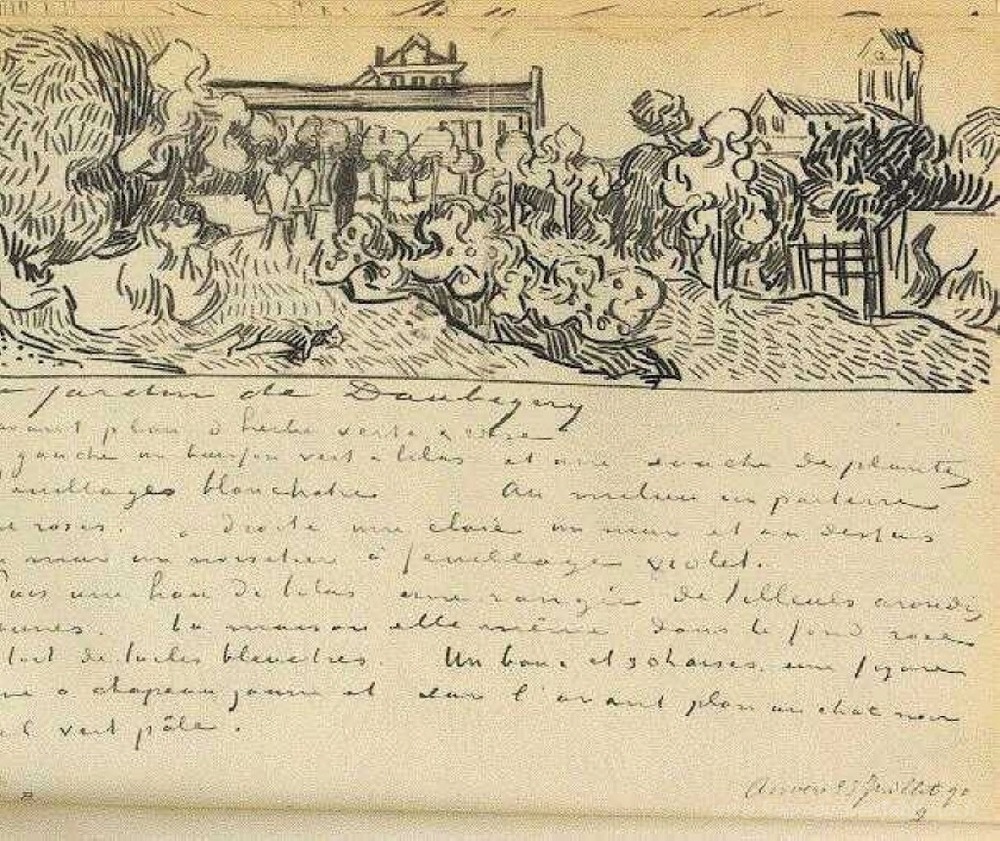 jardin de Daubigny
avant plan d'herbe verte & rose
gauche un buisson vert & lilas et une souche de plantes
feuillages blanchatres Au milieu un parterre
de roses. à droite une claie un mur et au dessus
mur un noisetier à feuillage violet.
Puis une haie de lilas une rangée de tilleuls arrondis
jaunes. La maison elle même dans le fond rose
toit de tuiles bleuatres. Un banc et 3 chaises. une figure
à chapeau jaune et sur l'avant plan un chat noir
vert pâle.
Auvers 23 Juillet 90